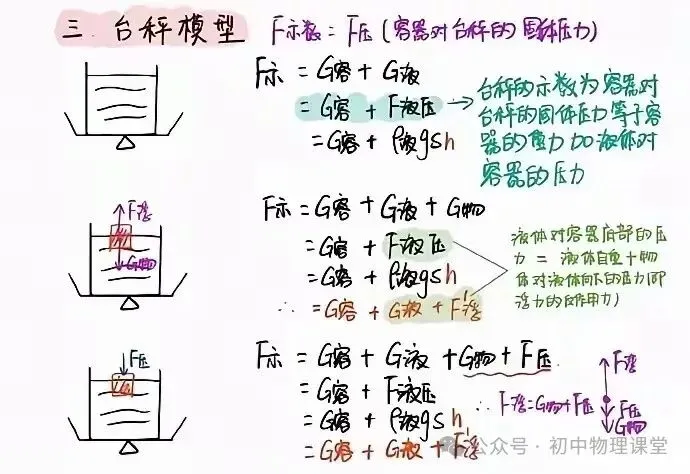 三. 台秤模型 F示数 = F压 (容器对台秤的固体压力)
F示 = G容 + G液
= G容 + F液压
= G容 + ρ液gsh
台秤的示数为容器对
台秤的固体压力等于容
器的重力加液体对
容器的压力
F浮
G物
F示 = G容 + G液 + G物
= G容 + F液压
= G容 + ρ液gsh
∴ = G容 + G液 + F'浮
液体对容器底部的压
力 = 液体自重 + 物
体对液体向下的压力(即
浮力的反作用力)
F压
F示 = G容 + G液 + G物 + F压
= G容 + F液压
= G容 + ρ液gsh
= G容 + G液 + F'浮
∴ F浮=G物+F压
F浮
F压
G物
公众号 · 初中物理课堂